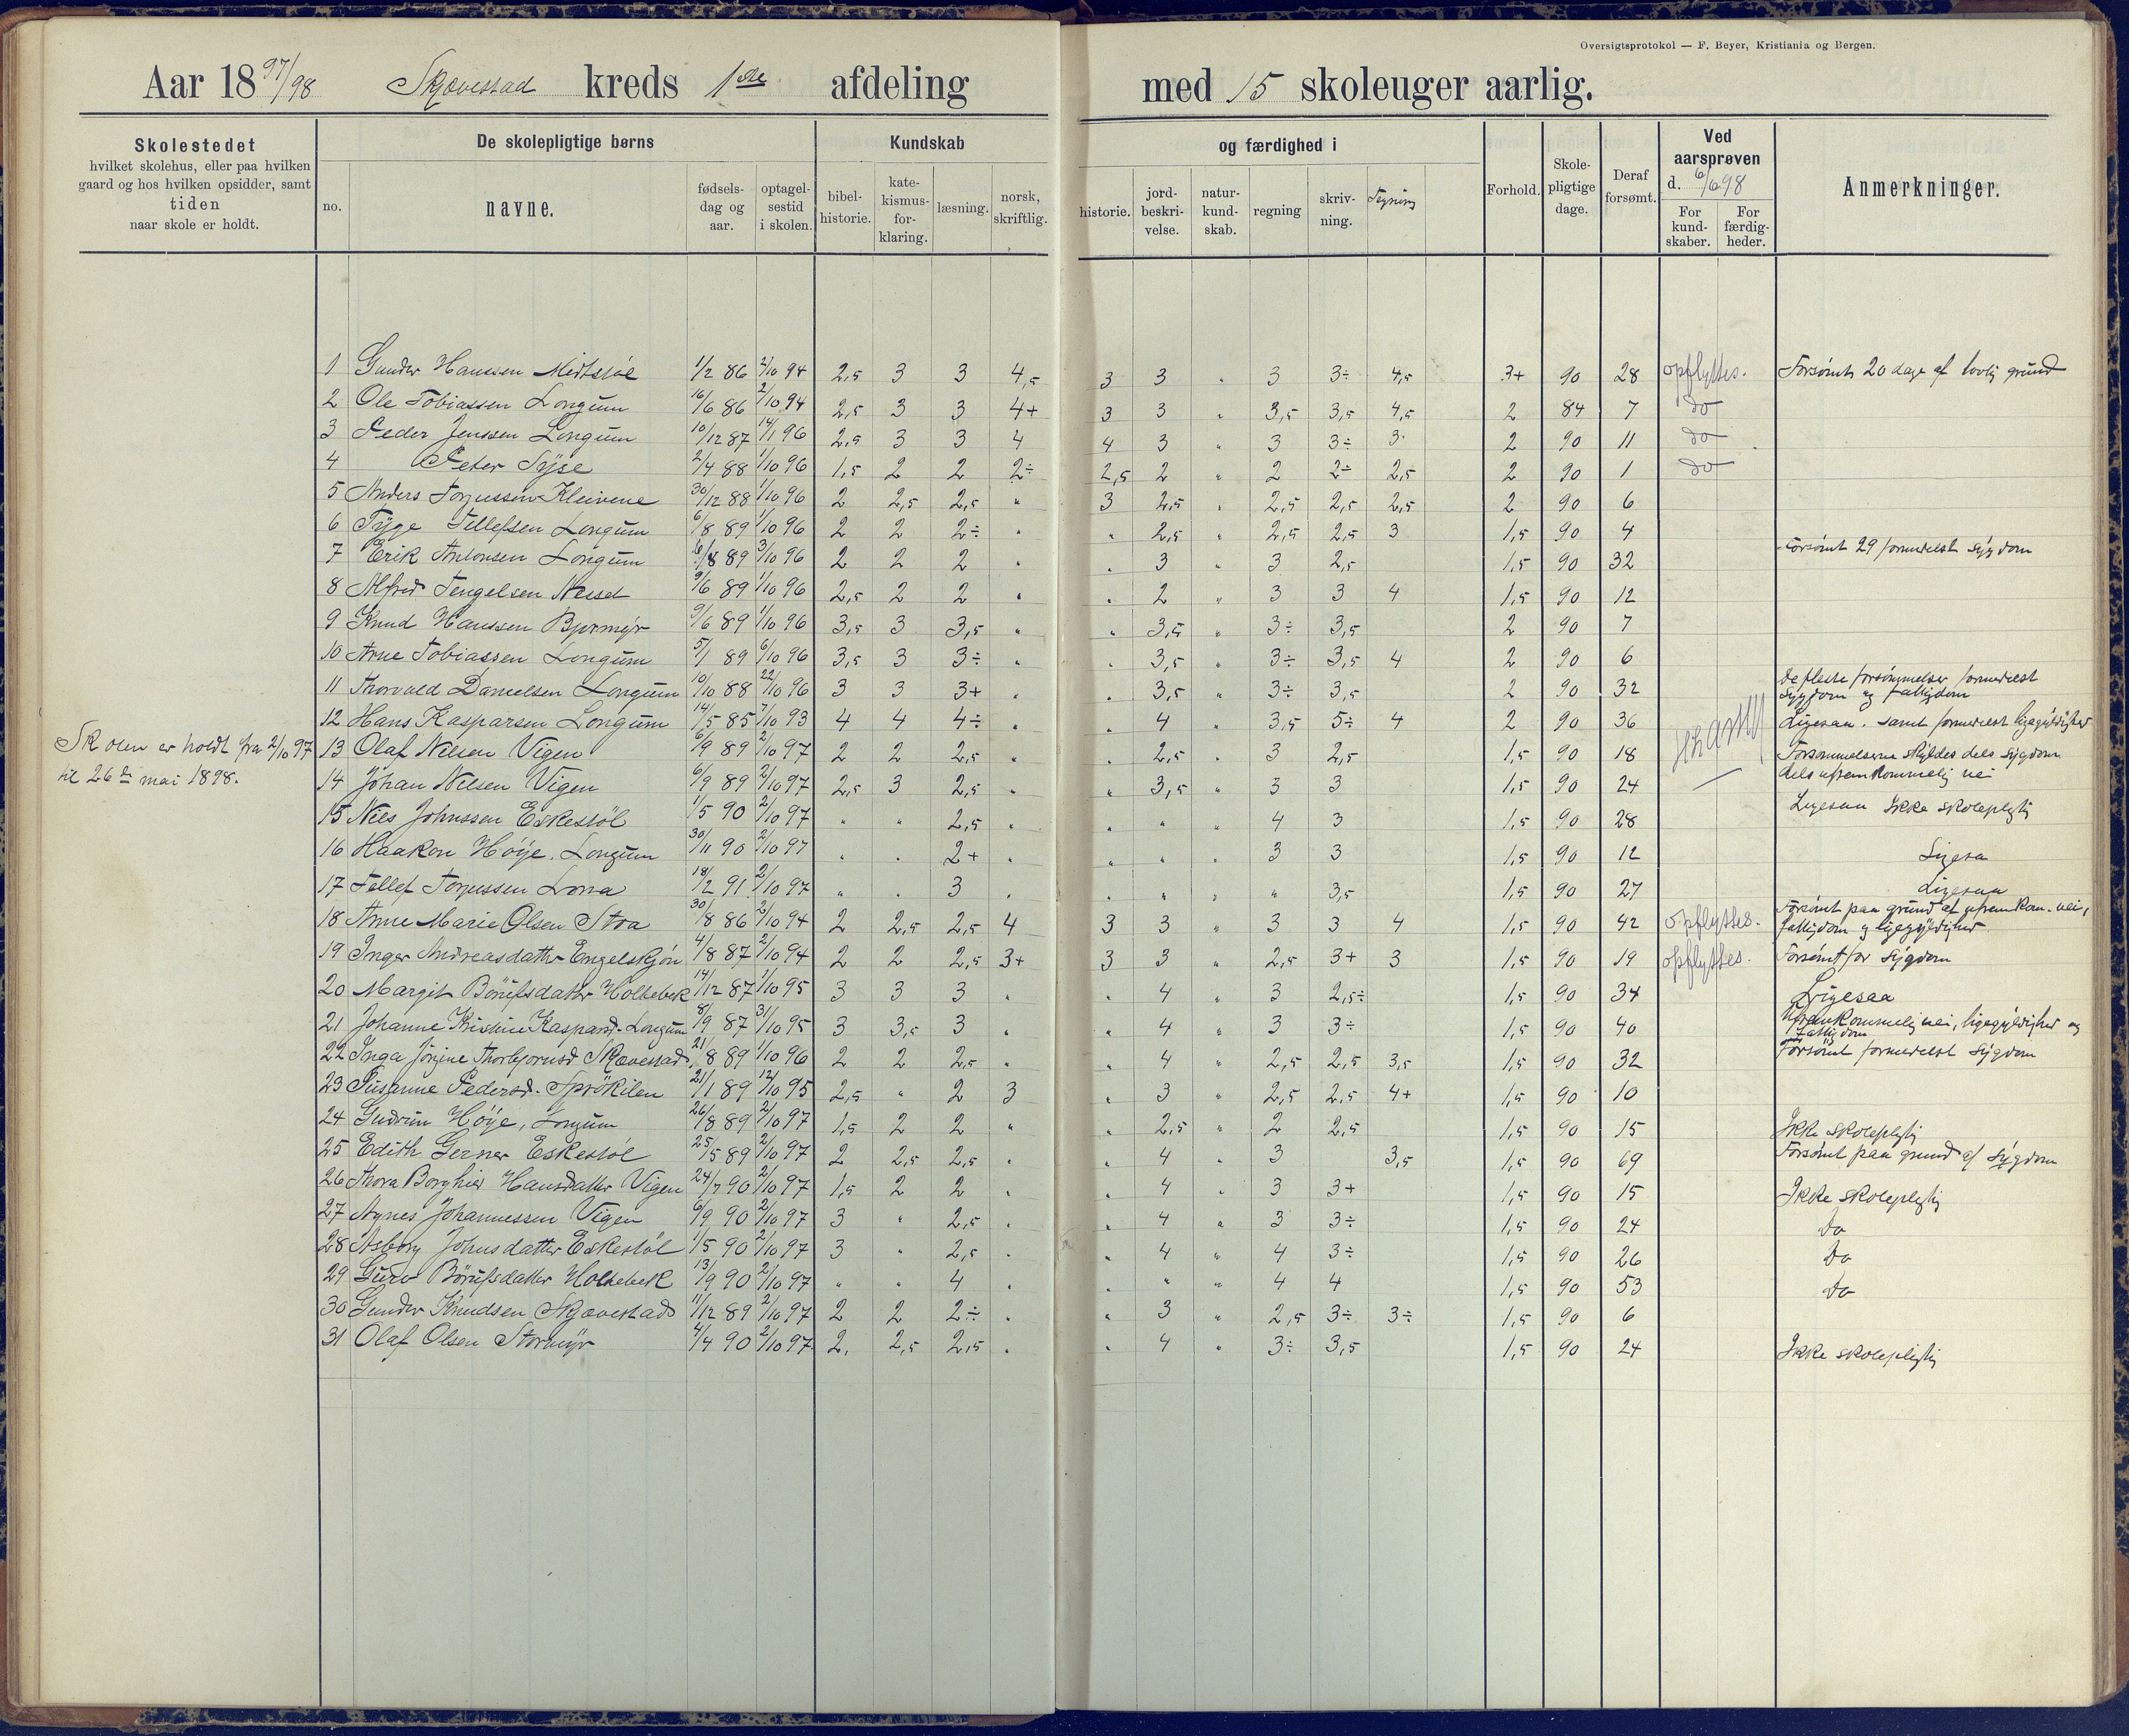 Oversigtsprotokol — F. Beyer, Kristiania og Bergen.
Aar 1897/98 Skjævestad kreds 1ste afdeling med 15 skoleuger aarlig.
Skolestedet
hvilket skolehus, eller paa hvilken
gaard og hos hvilken opsidder, samt
tiden
naar skole er holdt.
De skolepligtige børns
no.
navne.
fødsels-
dag og
aar.
optagel-
sestid
i skolen.
Kundskab
bibel-
historie.
kate-
kismus-
for-
klaring.
læsning.
norsk,
skriftlig.
og færdighed i
historie.
jord-
beskri-
velse.
natur-
kund-
skab.
regning
skriv-
ning.
Tegning
Forhold.
Skole-
pligtige
dage.
Deraf
forsømt.
Ved
aarsprøven
d. 6/6 98
For
kund-
skaber.
For
færdig-
heder.
Anmerkninger.
Skolen er holdt fra 2/10 97
til 26de mai 1898.
1 Gunder Hanssen Midtstøl 1/2 86 2/10 94 2,5 3 3 4,5 3 3 " 3 3÷ 4,5 3+ 90 28 opflyttes. Forsømt 20 dage af lovlig grund
2 Ole Tobiassen Longum 16/6 86 2/10 94 2,5 3 3 4+ 3 3 " 3,5 3,5 4,5 2 84 7 do
3 Peder Jenssen Longum 10/12 87 14/1 96 2,5 3 3 4 4 3 " 3 3÷ 3 2 90 11 do
4 Peter Syse 2/4 88 1/10 96 1,5 2 2 2÷ 2,5 2 " 2 2÷ 2,5 2 90 1 do
5 Anders Torjussen Kleivene 30/12 88 1/10 96 2 2,5 2,5 " 3 2,5 " 2,5 2,5 2,5 2 90 6
6 Tyge Tellefsen Longum 6/8 89 1/10 96 2 2 2÷ " " 2,5 " 2,5 2,5 3 1,5 90 4
7 Erik Antonsen Longum 6/8 89 3/10 96 2 2 2 " " 3 " 3 2,5 1,5 90 32 Forsømt 29 formedelst sygdom
8 Alfred Tengelsen Nesset 9/6 89 1/10 96 2,5 2 2 " " 2 " 3 3 4 1,5 90 12
9 Knud Hanssen Bjormyr 9/6 89 1/10 96 3,5 3 3,5 " " 3,5 " 3÷ 3,5 2 90 7
10 Arne Tobiassen Longum 5/1 89 6/10 96 3,5 3 3÷ " " 3,5 " 3÷ 3,5 4 2 90 6
11 Thorvald Danielsen Longum 10/10 88 22/10 96 3 3 3+ " " 3,5 " 3÷ 3,5 2 90 32 De fleste forsømmelser formedelst
sygdom og fattigdom
12 Hans Kasparsen Longum 14/5 85 7/10 93 4 4 4÷ " " 4 " 3,5 5÷ 4 2 90 36 Ligesaa. samt formedelst ligegyldighed
13 Olaf Nilsen Vigen 6/9 89 2/10 97 2 2 2,5 " " 2,5 " 3 2,5 1,5 90 18 Forsømmelserne skyldes dels sygdom
dels ufremkommelig vei
14 Johan Nilsen Vigen 6/9 89 2/10 97 2,5 3 2,5 " " 3,5 " 3 3 1,5 90 24
15 Niels Johnssen Eskestøl 1/5 90 2/10 97 " " 2,5 " " " " 4 3 1,5 90 28 Ligesaa Ikke skolepligtig
16 Haakon Höije. Longum 30/11 90 2/10 97 " " 2+ " " " " 3 3 1,5 90 12 Ligesa
17 Tellef Torjussen Lona 18/2 91 2/10 97 " " 3 " " " " " 3,5 1,5 90 27 Ligesaa
18 Anne Marie Olsen Stoa 30/8 86 2/10 94 2 2,5 2,5 4 3 3 " 3 3 4 1,5 90 42 opflyttes. Forsømt paa grund af ufremkom. vei,
fattigdom og ligegyldighed
19 Inger Andreasdatter Engelskjön 4/8 87 2/10 94 2 2 2,5 3+ 3 3 " 2,5 3+ 3 1,5 90 19 opflyttes. Forsømt for sygdom
20 Margit Börufsdatter Holtebek 14/12 87 1/10 95 3 3 3 " " 4 " 3 2,5÷ 1,5 90 34 Ligesaa
21 Johanne Kristine Kaspard. Longum 8/9 87 31/10 95 3 3,5 3 " " 4 " 3 3÷ 1,5 90 40 Ufremkommelig vei, ligegyldighed og
fattigdom
22 Inga Jörgine Thorbjornsd Skjævestad 21/8 89 1/10 96 2 2 2,5 " " 4 " 2,5 2,5 3,5 1,5 90 32 Forsømt formedelst sygdom
23 Susanne Pedersd. Spröikilen 21/1 89 12/10 95 2,5 " 2 3 " 3 " 2,5 2,5 4+ 1,5 90 10
24 Gudrun Höije, Longum 26/8 89 2/10 97 1,5 2 2 " " 2,5 " 2 2,5 1,5 90 15 Ikke skolepligtig
25 Edith Gerner Eskestøl 25/5 89 2/10 97 2 2,5 2,5 " " 4 " 3 3,5 1,5 90 69 Forsømt paa grund af sygdom
26 Thora Borghild Hansdatter Vigen 24/7 90 2/10 97 1,5 2 2 " " 4 " 3 3+ 1,5 90 15 Ikke skolepligtig
27 Agnes Johannessen Vigen 6/9 90 2/10 97 3 " 2,5 " " 4 " 3 3÷ 1,5 90 24 do
28 Asborg Johnsdatter Eskestøl 1/5 90 2/10 97 3 " 2,5 " " 4 " 4 3÷ 1,5 90 26 Do
29 Guro Börufsdatter Holtebek 13/9 90 2/10 97 " " 4 " " " " 4 4 1,5 90 53 do
30 Gunder Knudsen Skjævestad 11/12 89 2/10 97 2 2 2÷ " " 3 " 2,5 3÷ 3÷ 1,5 90 6
31 Olaf Olsen Stormyr 4/4 90 2/10 97 2. 2,5 2,5 " " 4 " 3÷ 3,5 1,5 90 24 Ikke skolepligtig